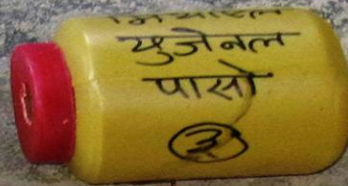 युजेनल
पासो
३